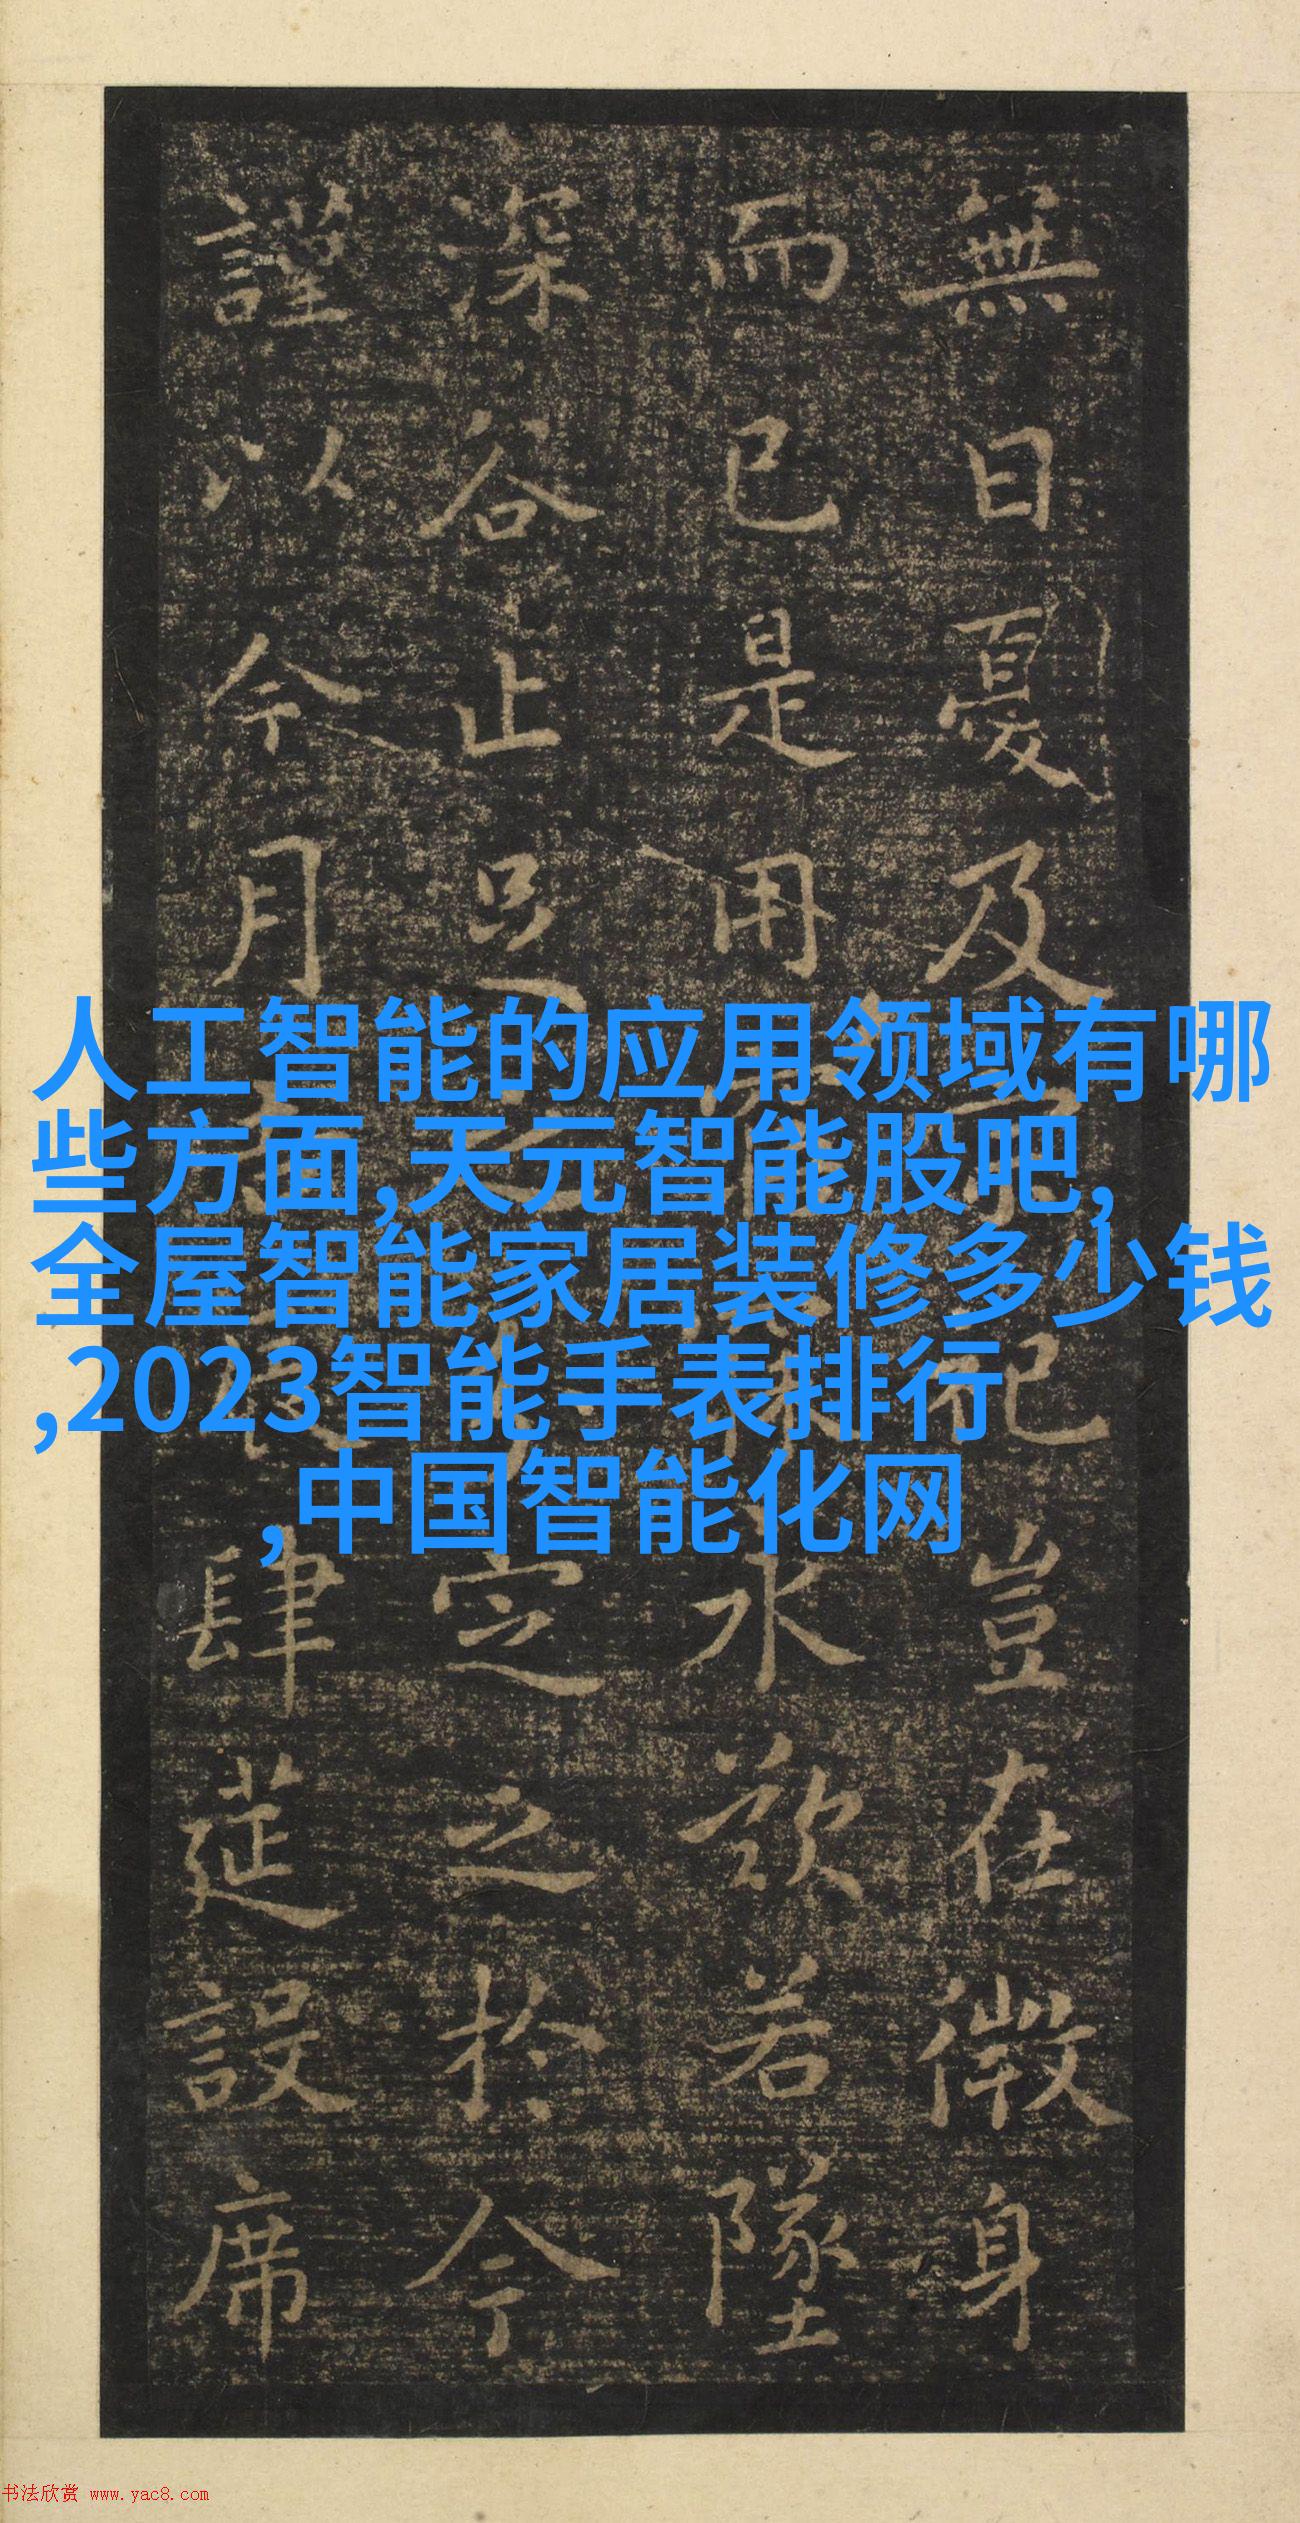 無日憂及紀豈在微身
而已是用永歎若墜
深谷止足之定之於今
謹以今月肆筵設席
人工智能的应用领域有哪
些方面,天元智能股吧,
全屋智能家居装修多少钱
,2023智能手表排行
,中国智能化网
书法欣赏 www.yac8.com